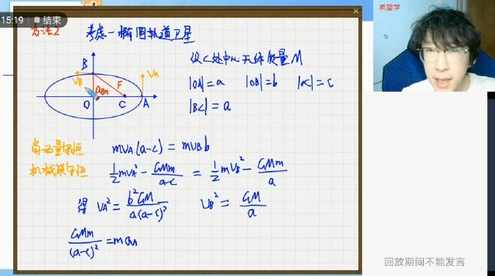 15:19 结束
希望学
方法2 考虑一椭圆轨道卫星
设C处中心天体质量M
|OA|=a |OB|=b |OC|=c
|BC|=a
B
V_B
F
V_A
O
C
A
角动量守恒 mV_A(a-c)=mV_B b
机械能守恒 \frac{1}{2}mV_A^2-\frac{GMm}{a-c}=\frac{1}{2}mV_B^2-\frac{GMm}{a}
得 V_A^2=\frac{b^2GM}{a(a-c)^2} V_B^2=\frac{GM}{a}
\frac{GMm}{(a-c)^2}=ma_A
回放期间不能发言